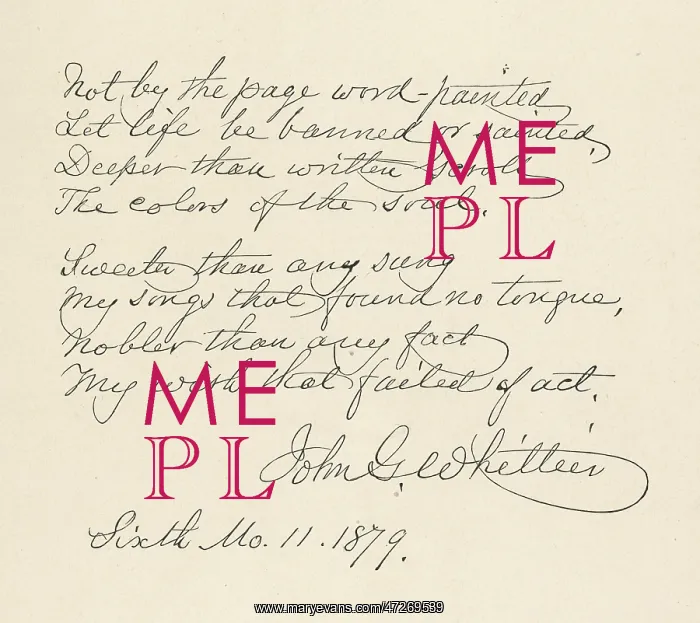 Not by the page word-painted
Let life be banned or sainted,
Deeper than written scroll
The colors of the soul.
Sweeter than any sung
My songs that found no tongue,
Nobler than any fact
My wish that failed of act.
John G. Whittier
Sixth Mo. 11. 1879.
ME
PL
ME
PL
www.maryevans.com/47269589